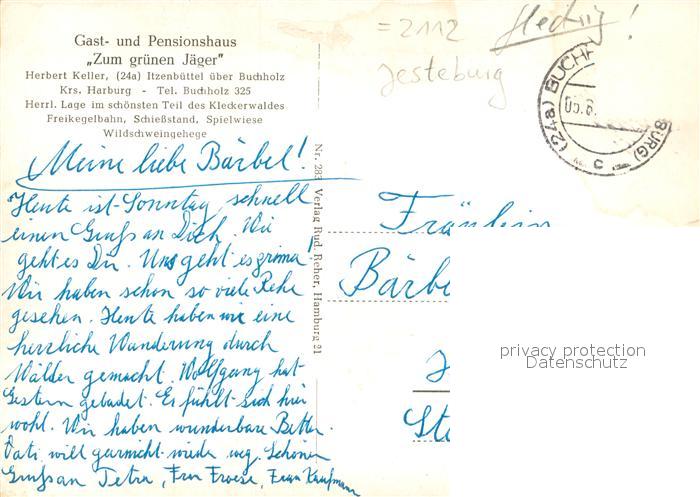 Gast- und Pensionshaus
„Zum grünen Jäger"
Herbert Keller, (24a) Itzenbüttel über Buchholz
Krs. Harburg - Tel. Buchholz 325
Herrl. Lage im schönsten Teil des Kleckerwaldes
Freikegelbahn, Schießstand, Spielwiese
Wildschweingehege
= 2112
Jesteburg
(24a) BUCHH
BURG)
05.8.
c
Meine liebe Bärbel!
Heute ist Sonntag, schnell
einen Gruß an Dich. Wie
geht es Dir. Uns geht es prima!
Wir haben schon so viele Rehe
gesehen. Heute haben wir eine
herrliche Wanderung durch
Wälder gemacht. Wolfgang hat
Gestern gebadet. Er fühlt sich hier
wohl. Wir haben wunderbare Betten.
Vati will garnicht wieder weg. Schönen
Gruß an Petra, Frau Froese, Frau Kaufmann
Nr. 283 Verlag Rud. Reher, Hamburg 21
Fräulein
Bärbe
St
privacy protection
Datenschutz